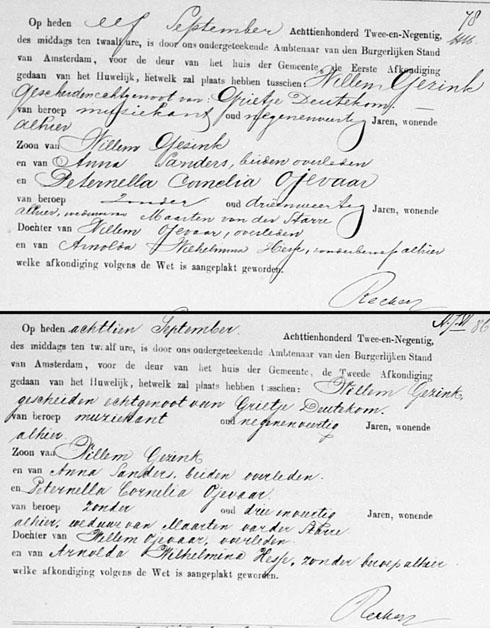 78
Op heden elf September Achttienhonderd Twee-en-Negentig,
des middags ten twaalf ure, is door ons ondergeteekende Ambtenaar van den Burgerlijken Stand
van Amsterdam, voor de deur van het huis der Gemeente, de Eerste Afkondiging
gedaan van het Huwelijk, hetwelk zal plaats hebben tusschen: Willem Gezink
gescheiden echtgenoot van Grietje Deutekom,
van beroep muziekant oud negenenveertig Jaren, wonende
alhier
Zoon van Willem Gezink
en van Anna Sanders, beiden overleden
en Peternella Cornelia Ojevaar
van beroep zonder oud drieenveertig Jaren, wonende
alhier, weduwe van Maarten van der Starre
Dochter van Willem Ojevaar, overleden
en van Arnolda Wilhelmina Hesp, zonder beroep alhier
welke afkondiging volgens de Wet is aangeplakt geworden.
86
Op heden achttien September Achttienhonderd Twee-en-Negentig,
des middags ten twaalf ure, is door ons ondergeteekende Ambtenaar van den Burgerlijken Stand
van Amsterdam, voor de deur van het huis der Gemeente, de Tweede Afkondiging
gedaan van het Huwelijk, hetwelk zal plaats hebben tusschen: Willem Gezink,
gescheiden echtgenoot van Grietje Deutekom.
van beroep muziekant oud negenenveertig Jaren, wonende
alhier.
Zoon van Willem Gezink
en van Anna Sanders, beiden overleden.
en Peternella Cornelia Ojevaar.
van beroep zonder oud drieenveertig Jaren, wonende
alhier, weduwe van Maarten van der Starre
Dochter van Willem Ojevaar, overleden
en van Arnolda Wilhelmina Hesp, zonder beroep alhier
welke afkondiging volgens de Wet is aangeplakt geworden.